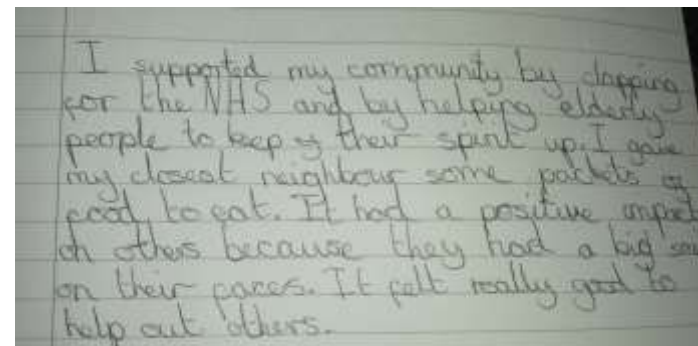 I supported my community by clapping
for the NHS and by helping elderly
people to keep their spirit up. I gave
my closest neighbour some packets of
food to eat. It had a positive impact
on others because they had a big
on their faces. It felt really good to
help out others.